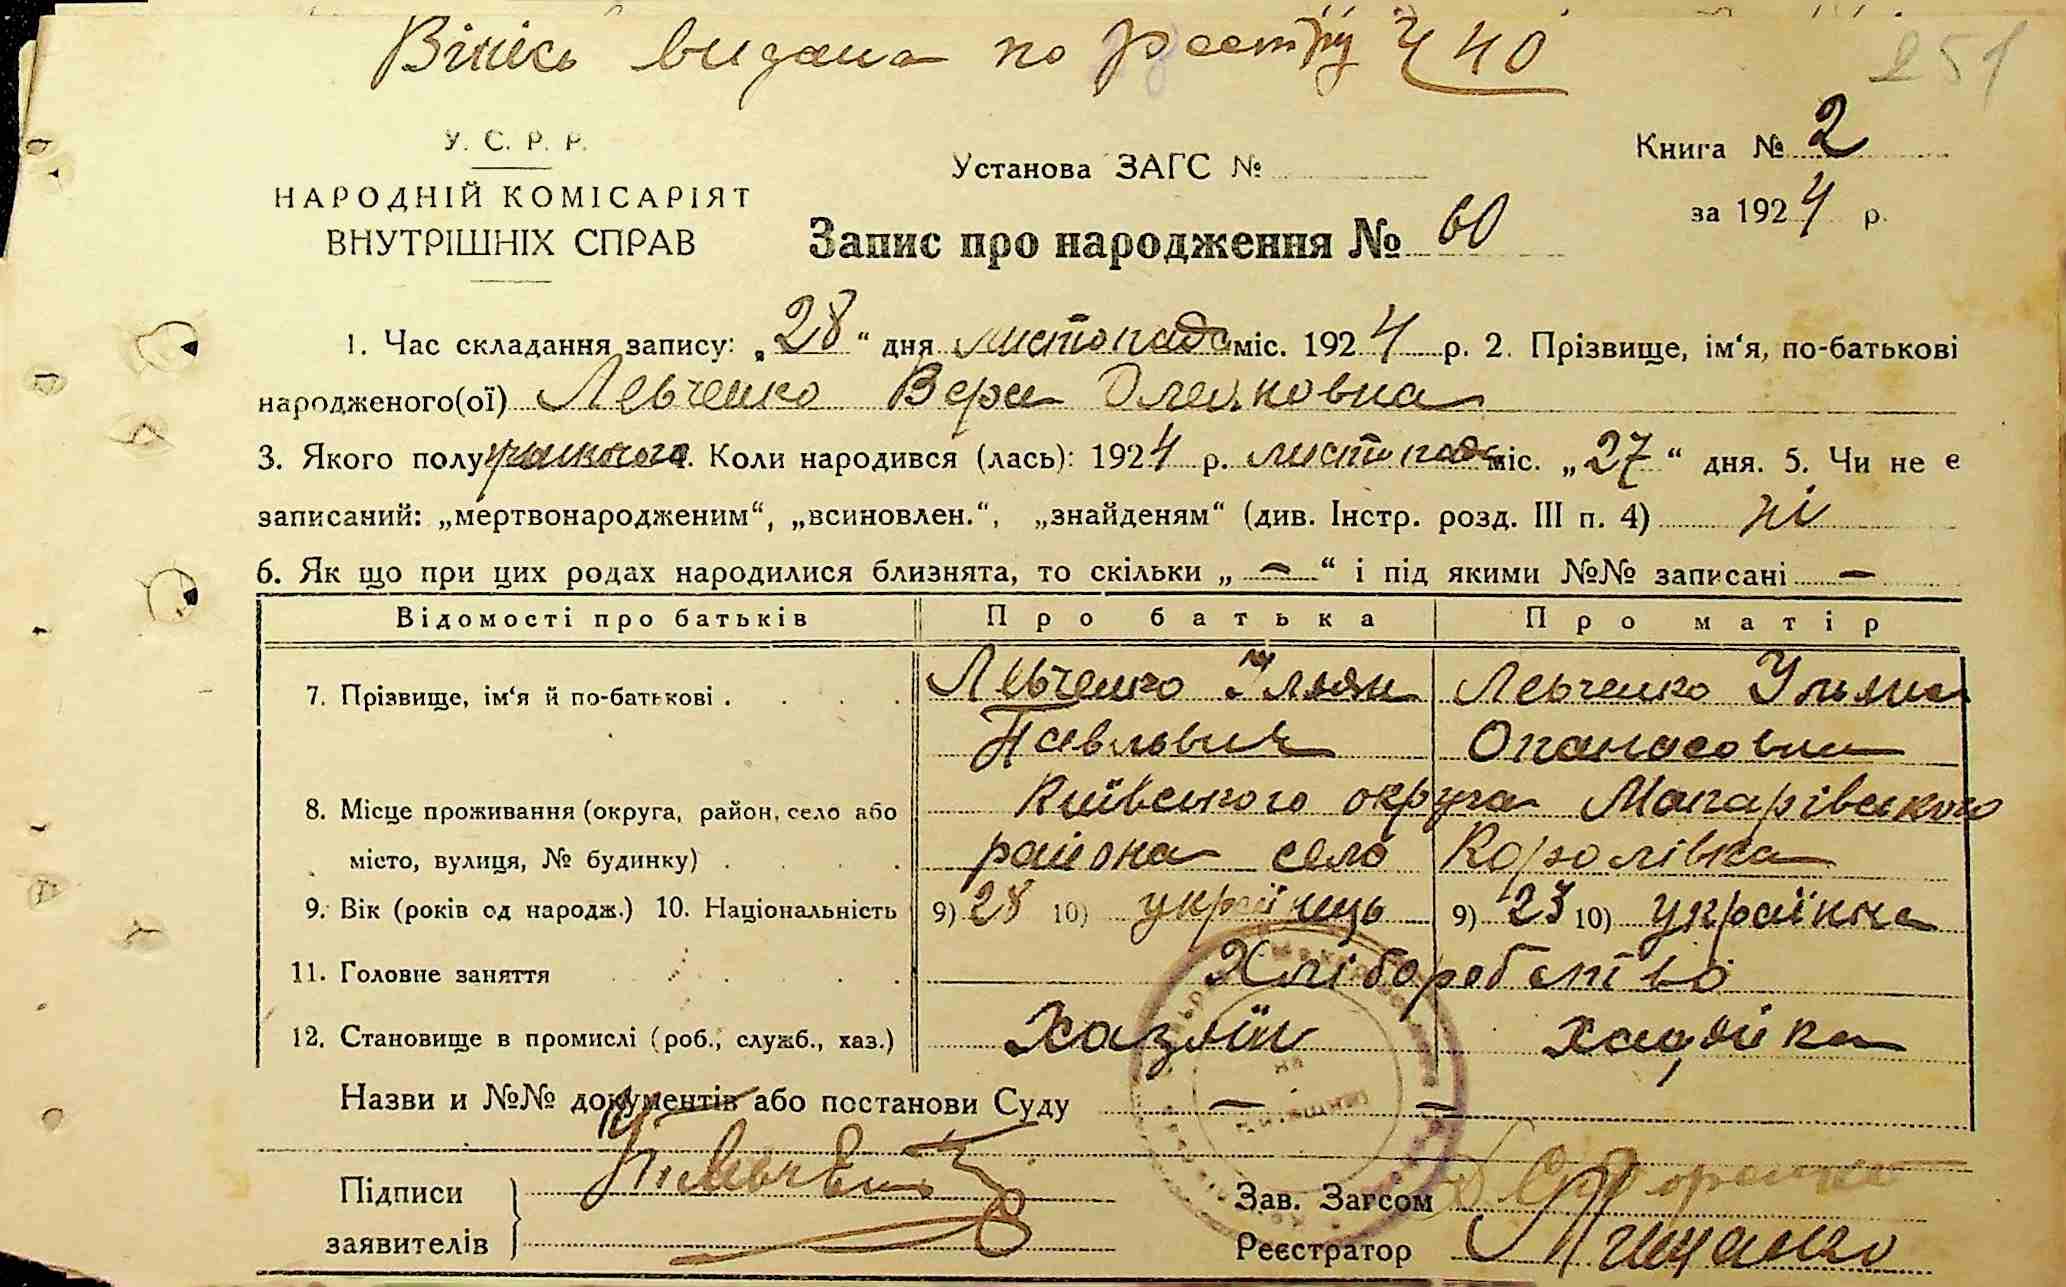 Випись видана по реєстру ч 40
251
У. С. Р. Р.
НАРОДНІЙ КОМІСАРІЯТ
ВНУТРІШНІХ СПРАВ
Установа ЗАГС №
Книга № 2
за 1924 р.
Запис про народження № 60
1. Час складання запису: „28“ дня листопада міс. 1924 р. 2. Прізвище, ім‘я, по-батькові
народженого(ої) Левченко Вера
3. Якого полу жіночого. Коли народився (лась): 1924 р. листопада міс. „27“ дня. 5. Чи не є
записаний: „мертвонародженим“, „всиновлен.“, „знайденям“ (див. Інстр. розд. III п. 4) ні
6. Як що при цих родах народилися близнята, то скільки „ — “ і під якими №№ записані —
Відомості про батьків Про батька Про матір
7. Прізвище, ім‘я й по-батькові . . . . Левченко Левченко Уляна
Павлович Опанасовна
8. Місце проживання (округа, район, село або Київського округа Макарівського
місто, вулиця, № будинку) . . . . района село Королівка
9. Вік (років од народж.) 10. Національність 9) 28 10) українець 9) 23 10) українка
11. Головне заняття . . . . Хліборобство
12. Становище в промислі (роб., служб., хаз.) Хазяїн хазяйка
Назви и №№ документів або постанови Суду — —
Підписи
заявителів
Зав. Загсом
Реєстратор